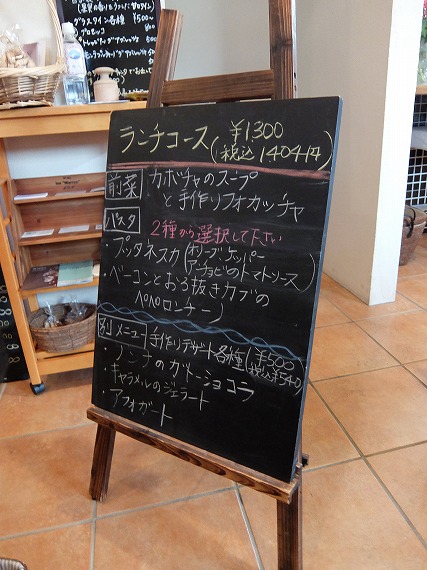 グラスワイン各種 ¥500〜
プロセッコ
ランチコース ¥1300
(税込1404円)
前菜 カボチャのスープ
と手作りフォカッチャ
パスタ 2種から選択して下さい
・プッタネスカ(オリーブ、ケッパー
アーチョビのトマトソース)
・ベーコンとおろ抜きカブの
ペペロンチーノ
別メニュー 手作りデザート各種(¥500
税込¥540)
・ノンナのガトーショコラ
・キャラメルのジェラート
・アフォガート